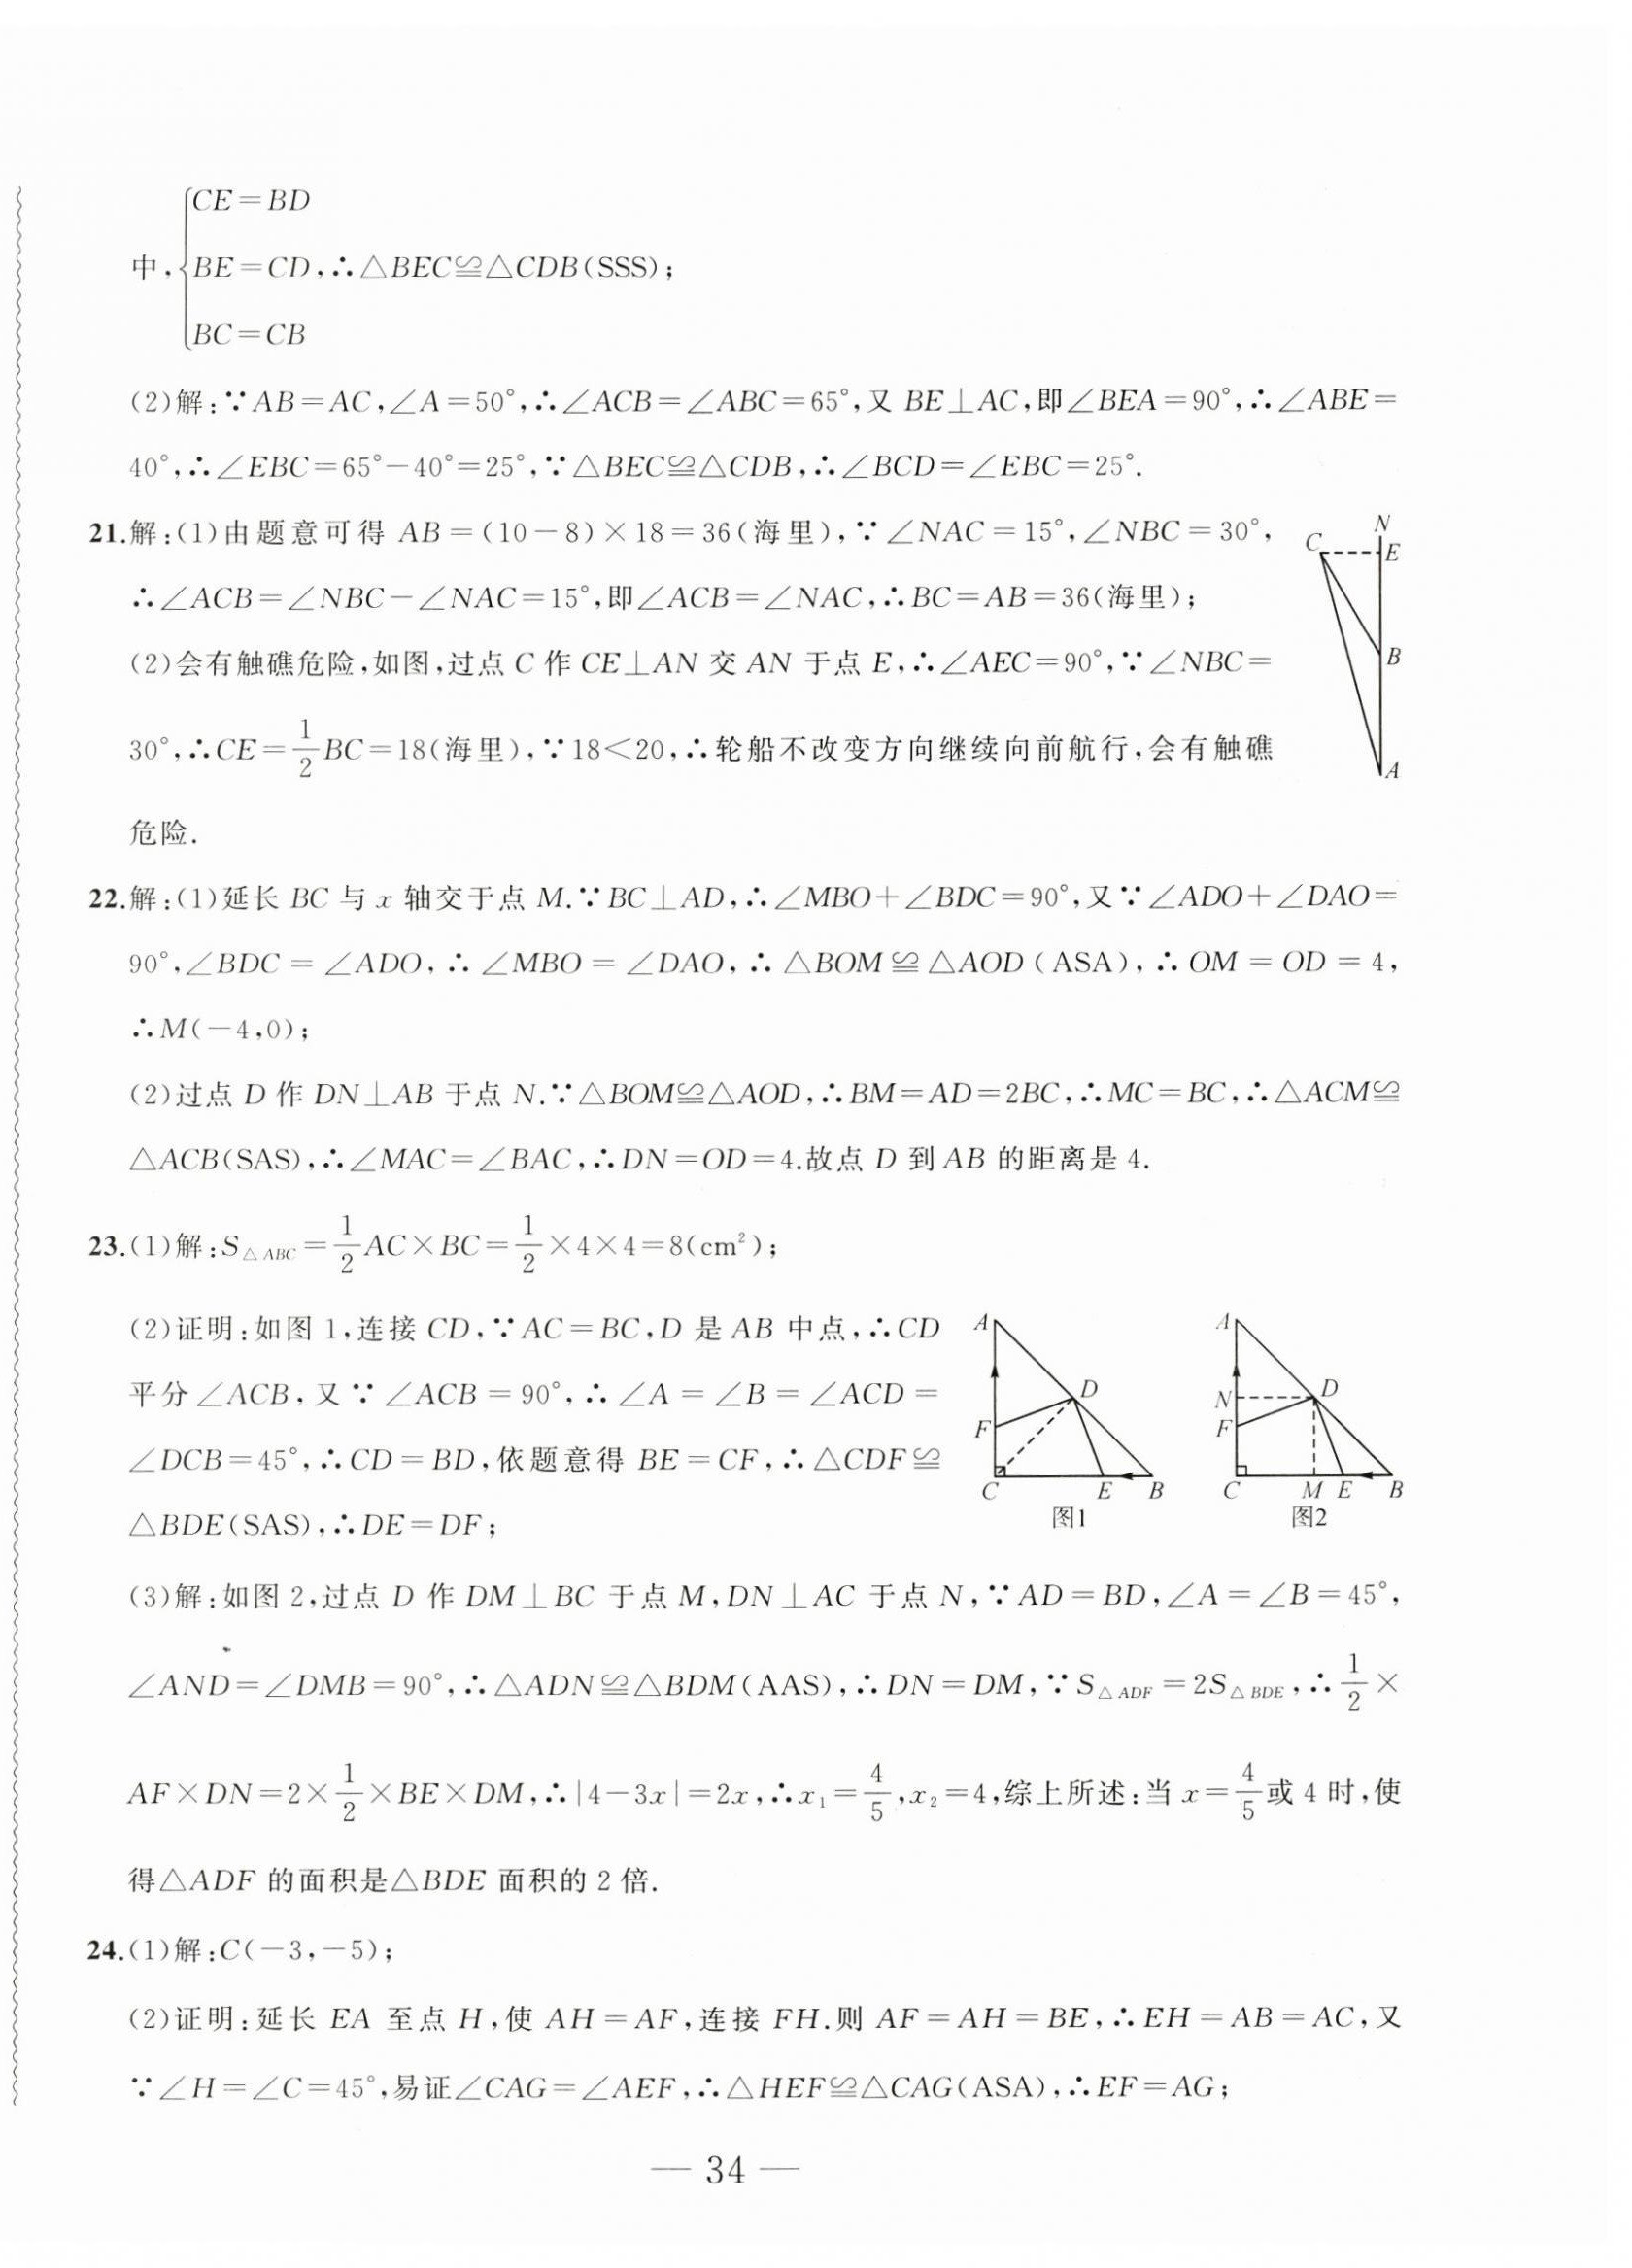 CE=BD
中,{BE=CD,∴△BEC≌△CDB(SSS);
BC=CB
(2)解:∵AB=AC,∠A=50°,∴∠ACB=∠ABC=65°,又 BE⊥AC,即∠BEA=90°,∴∠ABE=
40°,∴∠EBC=65°-40°=25°,∵△BEC≌△CDB,∴∠BCD=∠EBC=25°.
21.解:(1)由题意可得 AB=(10-8)×18=36(海里),∵∠NAC=15°,∠NBC=30°,
∴∠ACB=∠NBC-∠NAC=15°,即∠ACB=∠NAC,∴BC=AB=36(海里);
(2)会有触礁危险,如图,过点 C 作 CE⊥AN 交 AN 于点 E,∴∠AEC=90°,∵∠NBC=
30°,∴CE=1/2BC=18(海里),∵18<20,∴轮船不改变方向继续向前航行,会有触礁
危险.
N
C
E
B
A
22.解:(1)延长 BC 与 x 轴交于点 M.∵BC⊥AD,∴∠MBO+∠BDC=90°,又∵∠ADO+∠DAO=
90°,∠BDC=∠ADO,∴∠MBO=∠DAO,∴△BOM≌△AOD(ASA),∴OM=OD=4,
∴M(-4,0);
(2)过点 D 作 DN⊥AB 于点 N.∵△BOM≌△AOD,∴BM=AD=2BC,∴MC=BC,∴△ACM≌
△ACB(SAS),∴∠MAC=∠BAC,∴DN=OD=4.故点 D 到 AB 的距离是 4.
23.(1)解:S△ABC=1/2AC×BC=1/2×4×4=8(cm²);
(2)证明:如图 1,连接 CD,∵AC=BC,D 是 AB 中点,∴CD
平分∠ACB,又∵∠ACB=90°,∴∠A=∠B=∠ACD=
∠DCB=45°,∴CD=BD,依题意得 BE=CF,∴△CDF≌
△BDE(SAS),∴DE=DF;
A
D
F
C
E
B
图1
A
N
D
F
C
M
E
B
图2
(3)解:如图 2,过点 D 作 DM⊥BC 于点 M,DN⊥AC 于点 N,∵AD=BD,∠A=∠B=45°,
∠AND=∠DMB=90°,∴△ADN≌△BDM(AAS),∴DN=DM,∵S△ADF=2S△BDE,∴1/2×
AF×DN=2×1/2×BE×DM,∴|4-3x|=2x,∴x₁=4/5,x₂=4,综上所述:当 x=4/5或 4 时,使
得△ADF 的面积是△BDE 面积的 2 倍.
24.(1)解:C(-3,-5);
(2)证明:延长 EA 至点 H,使 AH=AF,连接 FH.则 AF=AH=BE,∴EH=AB=AC,又
∵∠H=∠C=45°,易证∠CAG=∠AEF,∴△HEF≌△CAG(ASA),∴EF=AG;
— 34 —